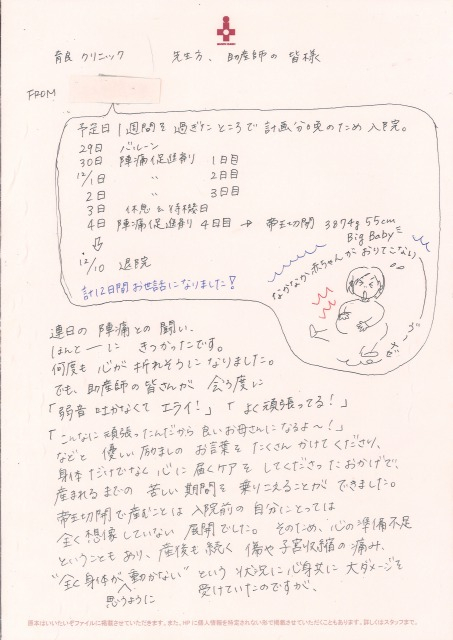 育良 クリニック 先生方、助産師の 皆様
FROM
予定日 1週間を 過ぎたところで 計画分娩のため 入院。
29日 バルーン
30日 陣痛促進剤 1日目
12/1日 〃 2日目
2日 〃 3日目
3日 休息&待機日
4日 陣痛促進剤 4日目 → 帝王切開 3874g 55cm
Big Baby
12/10 退院
計12日間 お世話になりました!
なかなか赤ちゃんが おりてこない
連日の 陣痛との 闘い、
ほんとーに きつかったです。
何度も 心が 折れそうに なりました。
でも、助産師の 皆さんが 会う度に
「弱音 吐かなくて エライ!」「よく頑張ってる!」
「こんなに 頑張ったんだから 良いお母さんに なるよ〜!」
などと 優しい 励ましの お言葉を たくさん かけてくださり、
身体だけでなく 心に 届くケアを してくださった おかげで、
産まれるまでの 苦しい 期間を 乗りこえることが できました。
帝王切開で 産むことは 入院前の 自分にとっては
全く 想像していない 展開でした。 そのため、心の準備不足
ということもあり、産後も 続く 傷や 子宮収縮の 痛み、
"全く 身体が 思うように 動かない" という 状況に 心身共に 大ダメージを
受けていたのですが、
原本はいいたいぞファイルに掲載させていただきます。また、HPに個人情報を特定されない形で掲載させていただくこともあります。詳しくはスタッフまで。